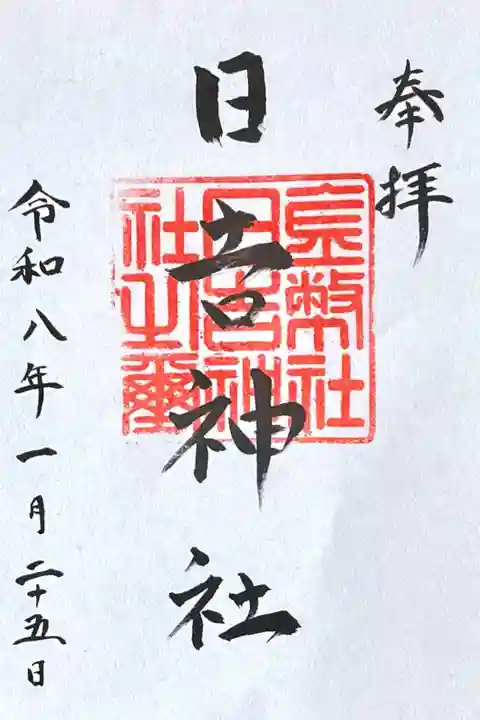 奉拝
日吉神社
皇幣社
日吉神
社之璽
令和八年一月二十五日